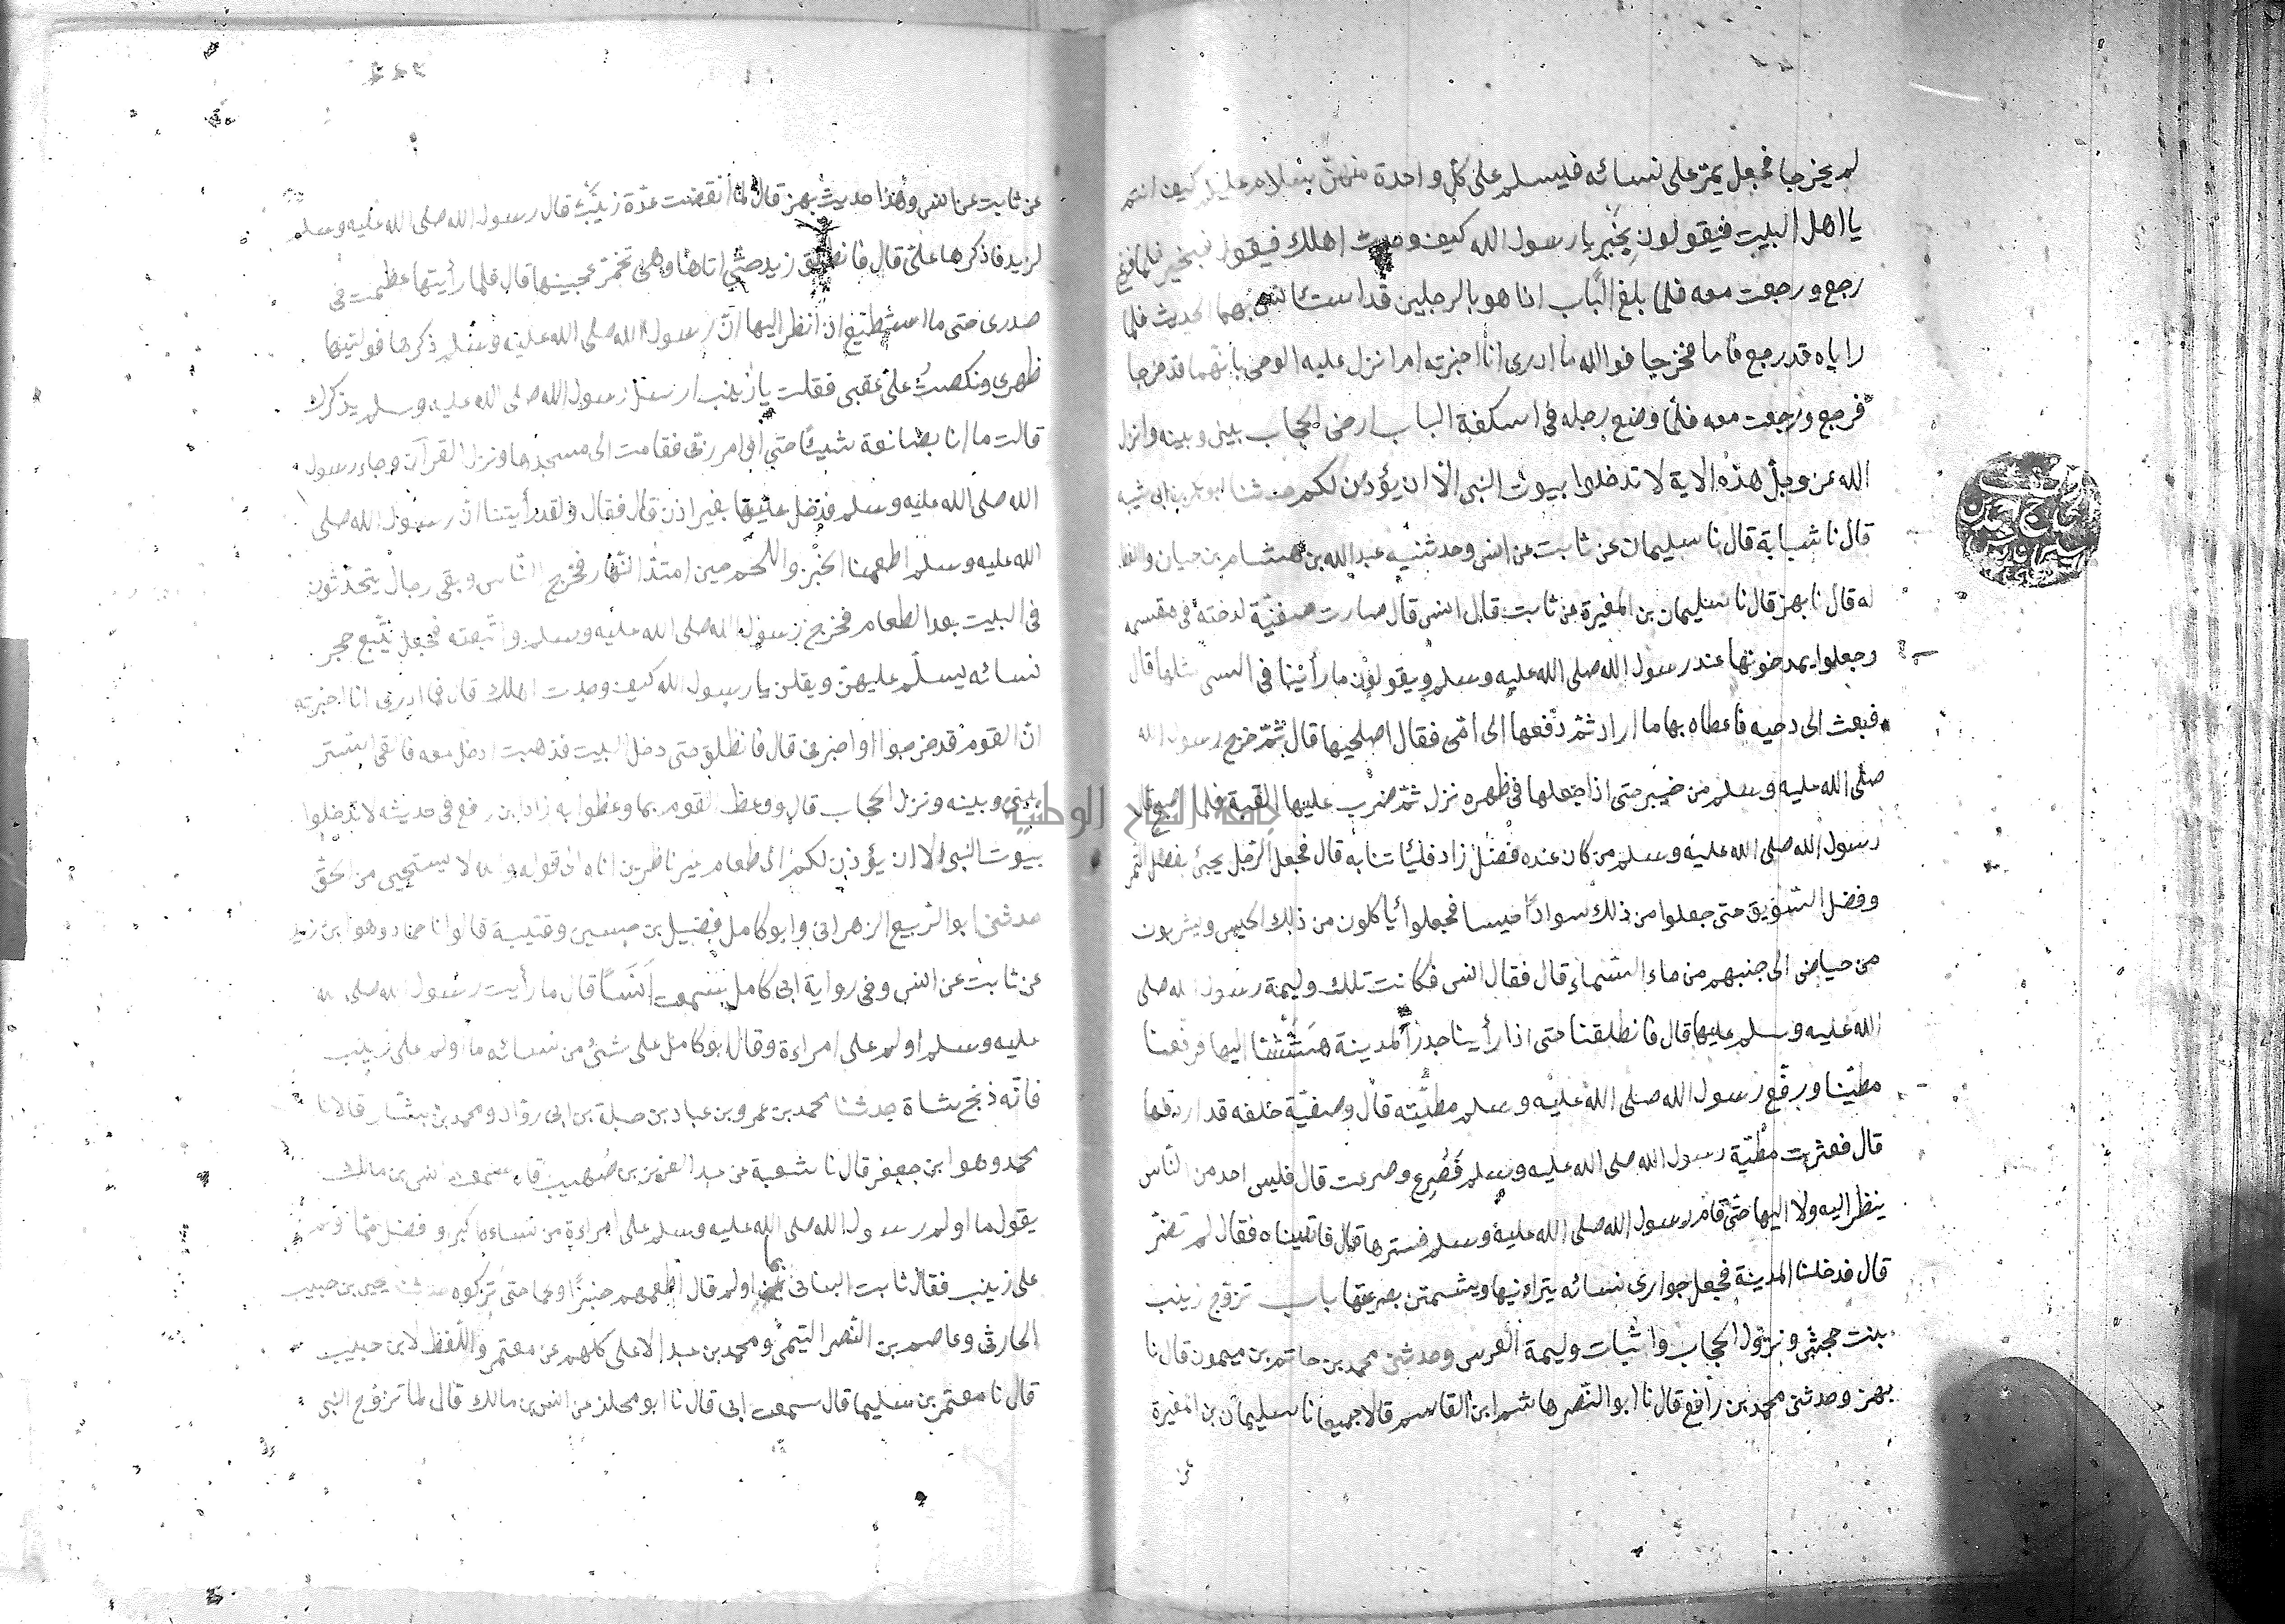 لم يخرجا فجعل يمر على نسائه فيسلم على كل واحدة منهن سلام عليكم كيف انتم
يا اهل البيت فيقولون بخير يا رسول الله كيف وجدت اهلك فيقول بخير فلما فرغ
رجع ورجعت معه فلما بلغ الباب اذا هو بالرجلين قد استانس بهما الحديث فلما
راياه قد رجع قاما فخرجا فوالله ما ادرى انا اخبرته ام انزل عليه الوحى بانهما قد خرجا
فرجع ورجعت معه فلما وضع رجله فى اسكفة الباب ارخى الحجاب بينى وبينه وانزل
الله عز وجل هذه الاية لا تدخلوا بيوت النبى الا ان يؤذن لكم حدثنا ابو بكر بن ابى شيبه
قال نا شبابة قال نا سليمان عن ثابت عن انس وحدثنيه عبد الله بن هشام بن حيان واللفظ
له قال نا بهز قال نا سليمان بن المغيرة عن ثابت قال انس قال صارت صفية لدحية فى مقسمه
وجعلوا يمدحونها عند رسول الله صلى الله عليه وسلم ويقولون ما رأينا فى السبى مثلها قال
فبعث الى دحيه فاعطاه بها ما اراد ثم دفعها الى امى فقال اصلحيها قال ثم خرج رسول الله
صلى الله عليه وسلم من خيبر حتى اذا جعلها فى ظهره نزل ثم ضرب عليها القبة فلما اصبح قال
رسول الله صلى الله عليه وسلم من كان عنده فضل زاد فليأتنا به قال فجعل الرجل يجئ بفضل التمر
وفضل السويق حتى جعلوا من ذلك سوادا حيسا فجعلوا يأكلون من ذلك الحيس ويشربون
من حياض الى جنبهم من ماء السماء قال فقال انس فكانت تلك وليمة رسول الله صلى
الله عليه وسلم عليها قال فانطلقنا حتى اذا رأينا جدر المدينة هششنا اليها فرفعنا
مطينا ورفع رسول الله صلى الله عليه وسلم مطيته قال وصفية خلفه قد اردفها
قال فعثرت مطية رسول الله صلى الله عليه وسلم فصرع وصرعت قال فليس احد من الناس
ينظر اليه ولا اليها حتى قام رسول الله صلى الله عليه وسلم فسترها قال فاتيناه فقال لم تضر
قال فدخلنا المدينة فجعل جوارى نسائه يتراءينها ويشمتن بصرعتها باب تزوج زينب
بنت جحش ونزول الحجاب واثبات وليمة العرس وحدثنى محمد بن حاتم بن ميمون قال نا
بهز وحدثنى محمد بن رافع قال نا ابو النضر هاشم ابن القاسم قالا جميعا نا سليمان بن المغيرة
عن
عن ثابت عن انس وهذا حديث بهز قال لما انقضت عدة زينب قال رسول الله صلى الله عليه وسلم
لزيد فاذكرها على قال فانطلق زيد حتى اتاها وهى تخمر عجينها قال فلما رأيتها عظمت فى
صدرى حتى ما استطيع ان انظر اليها ان رسول الله صلى الله عليه وسلم ذكرها فوليتها
ظهرى ونكصت على عقبى فقلت يا زينب ارسل رسول الله صلى الله عليه وسلم يذكرك
قالت ما انا بصانعة شيئا حتى اوامر ربى فقامت الى مسجدها ونزل القرآن وجاء رسول
الله صلى الله عليه وسلم فدخل عليها بغير اذن قال فقال ولقد رأيتنا ان رسول الله صلى
الله عليه وسلم اطعمنا الخبز واللحم حين امتد النهار فخرج الناس وبقى رجال يتحدثون
فى البيت بعد الطعام فخرج رسول الله صلى الله عليه وسلم واتبعته فجعل يتبع حجر
نسائه يسلم عليهن ويقلن يا رسول الله كيف وجدت اهلك قال فما ادرى انا اخبرته
ان القوم قد خرجوا او اخبرنى قال فانطلق حتى دخل البيت فذهبت ادخل معه فالقى الستر
بينى وبينه ونزل الحجاب قال ووعظ القوم بما وعظوا به زاد ابن رافع فى حديثه لا تدخلوا
بيوت النبى الا ان يؤذن لكم الى طعام غير ناظرين اناه الى قوله والله لا يستحيى من الحق
حدثنى ابو الربيع الزهرانى وابو كامل فضيل بن حسين وقتيبة قالوا نا حماد وهو ابن زيد
عن ثابت عن انس وفى رواية ابى كامل سمعت انسا قال ما رأيت رسول الله صلى الله
عليه وسلم اولم على امراءة وقال ابو كامل على شئ من نسائه ما اولم على زينب
فانه ذبح شاة حدثنا محمد بن عمرو بن عباد بن جبلة بن ابى رواد ومحمد بن بشار قالا نا
محمد وهو ابن جعفر قال نا شعبة عن عبد العزيز بن صهيب قال سمعت انس بن مالك
يقول ما اولم رسول الله صلى الله عليه وسلم على امراءة من نساءه اكبر وافضل مما اولم
على زينب فقال ثابت البنانى بما اولم قال اطعمهم خبزا ولحما حتى تركوه حدثنا يحيى بن حبيب
الحارثى وعاصم بن النضر التيمى ومحمد بن عبد الاعلى كلهم عن معتمر واللفظ لابن حبيب
قال نا معتمر بن سليما قال سمعت ابى قال نا ابو مجلز عن انس بن مالك قال لما تزوج النبى
جامعة النجاح الوطنية